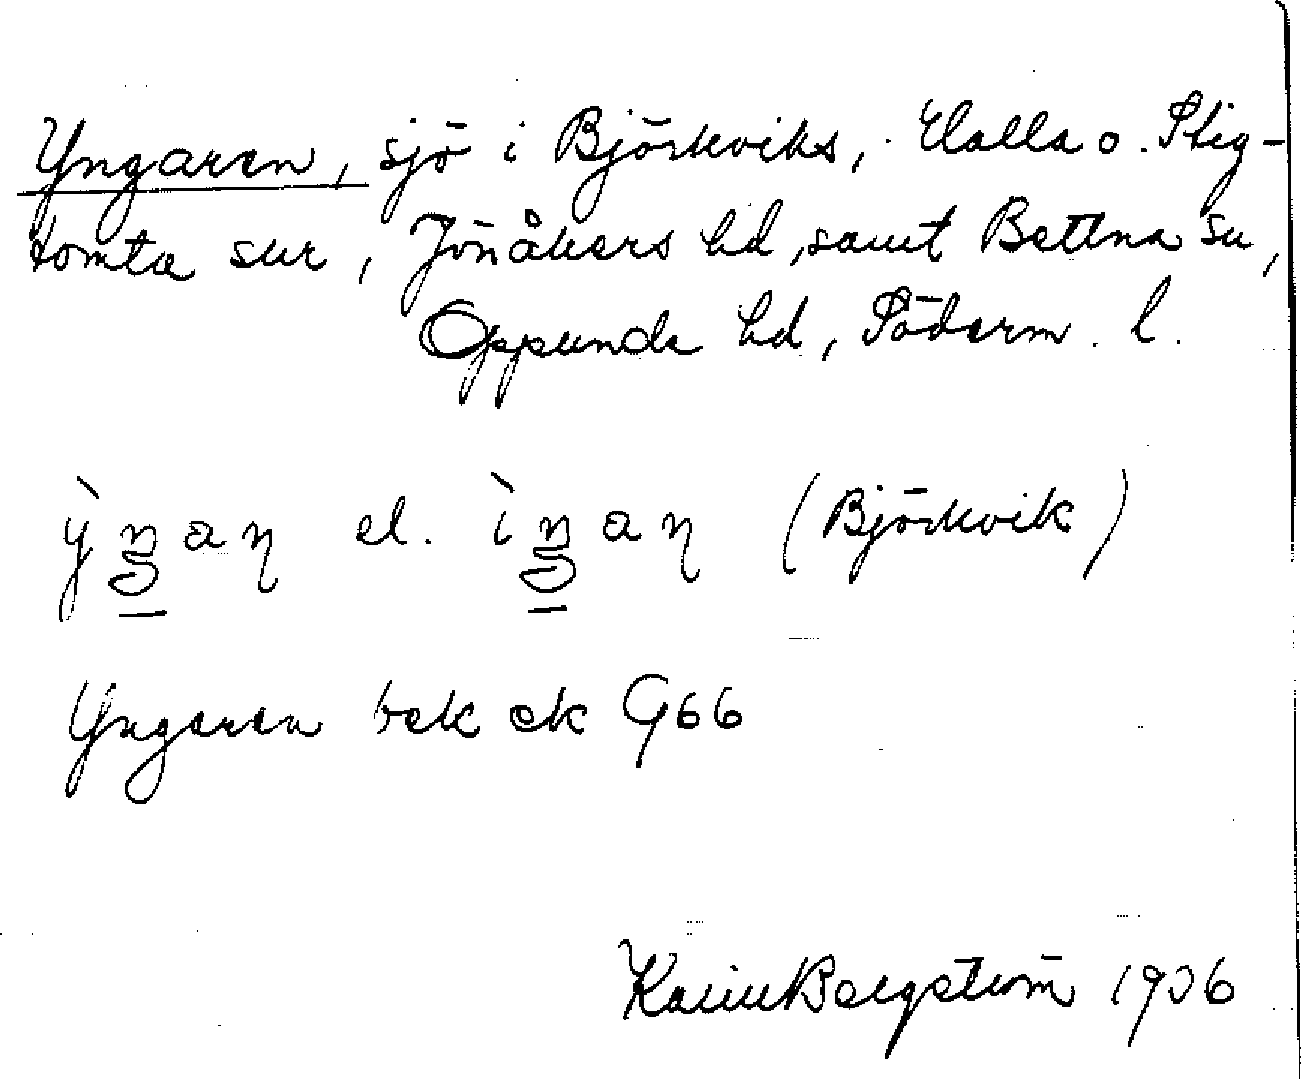 Yngaren, sjö i Björkviks, Halla o. Stig-
tomta snr, Jönåkers hd, samt Bettna sn,
Oppunda hd, Söderm. l.
el. (Björkvik)
Yngaren bek ek G66
Karin Bergström 1906